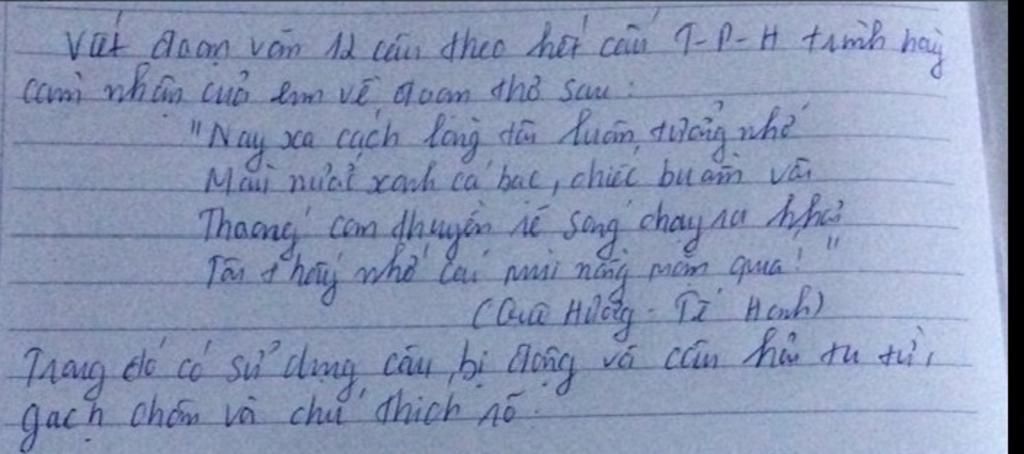 Viết đoạn văn 12 câu theo kết cấu T-P-H trình bày
cảm nhận của em về đoạn thơ sau:
"Nay xa cách lòng tôi luôn tưởng nhớ
Màu nước xanh cá bạc, chiếc buồm vôi
Thoáng con thuyền rẽ sóng chạy ra khơi
Tôi thấy nhớ cái mùi nồng mặn quá!"
(Quê Hương - Tế Hanh)
Trong đó có sử dụng câu bị động và câu hỏi tu từ,
gạch chân và chú thích rõ.